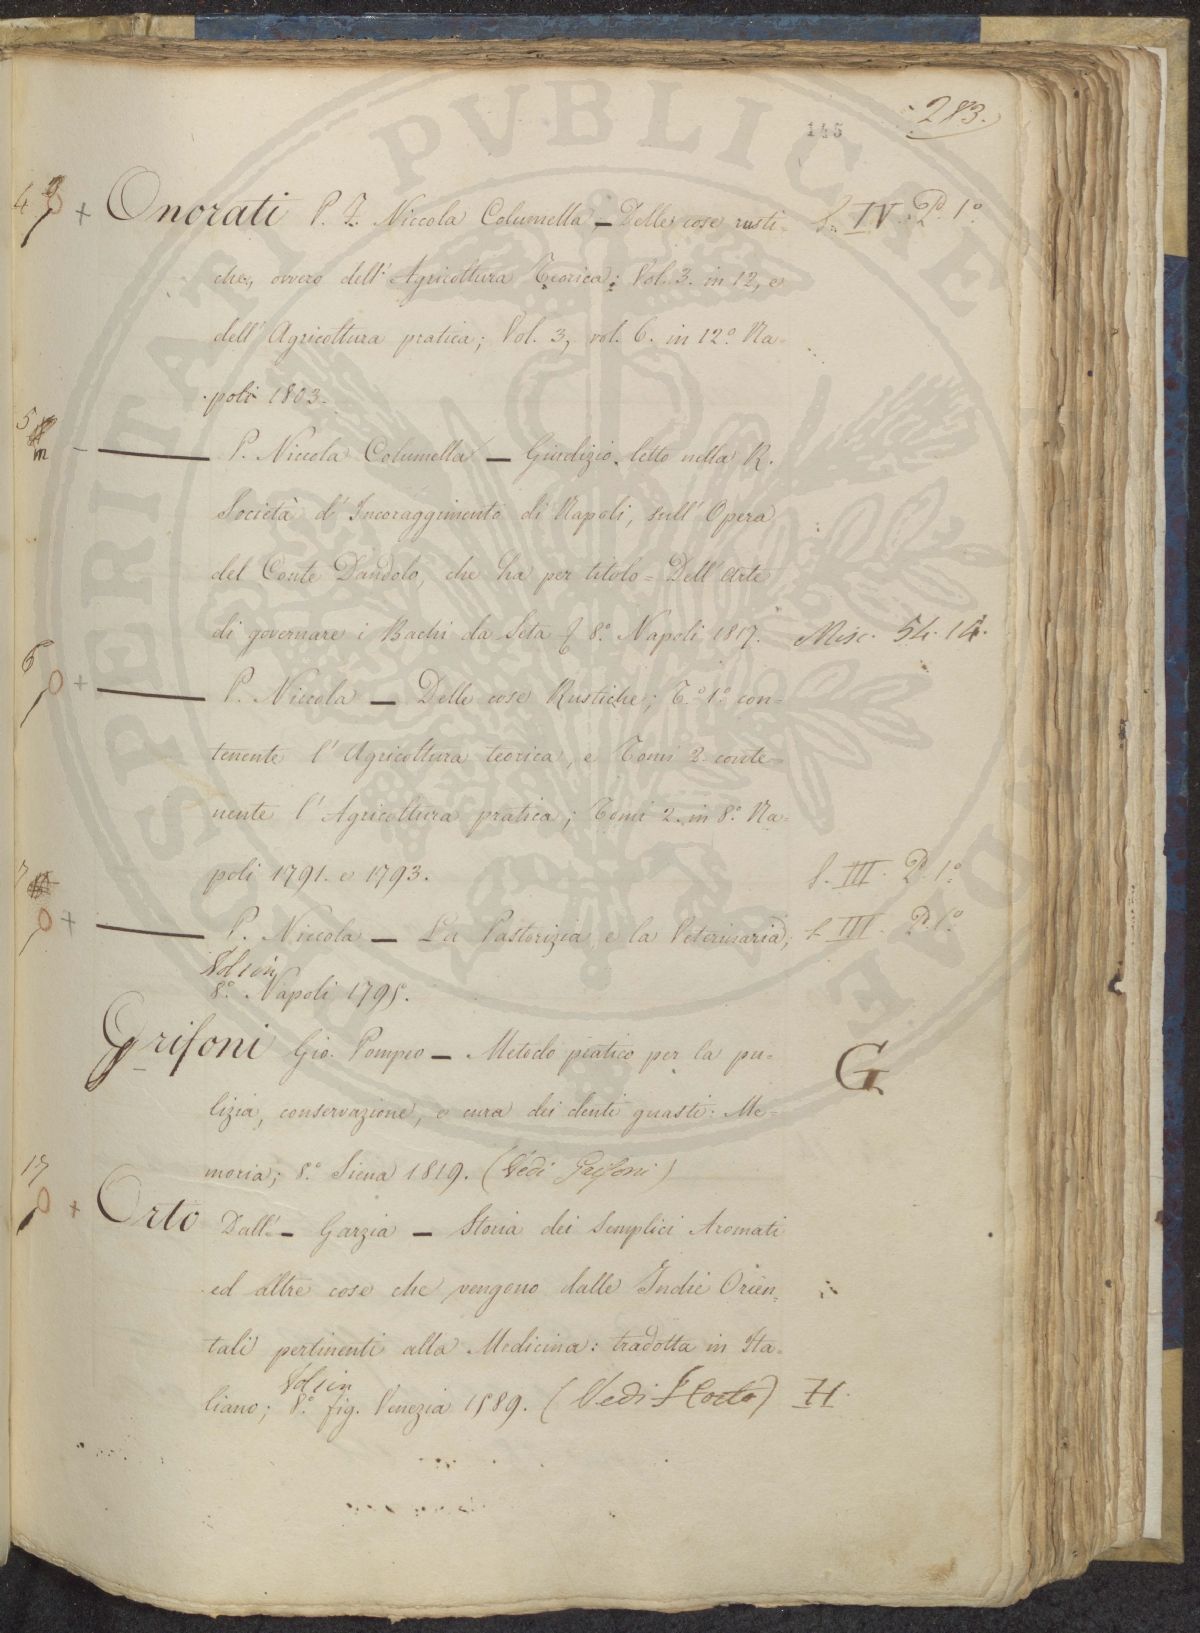 283.
145
4 + Onorati P. F. Niccola Columella - Delle cose rusti= S. IV. P. 1º
che, ovvero dell'Agricoltura Teorica; Vol. 3. in 12, e
dell'Agricoltura pratica; Vol. 3, vol. 6. in 12º Na=
poli 1803.
5 - P. Niccola Columella - Giudizio letto nella R.
Società d'Incoraggimento di Napoli, sull'Opera
del Conte Dandolo, che ha per titolo = Dell'Arte
di governare i Bachi da Seta 8º Napoli 1817. Misc. 54. 14.
6 + P. Niccola - Delle cose Rustiche; Tº 1º con=
tenente l'Agricoltura teorica, e Tomi 2 conte=
nente l'Agricoltura pratica; Tomi 2. in 8º Na=
poli 1791. e 1793. S. III. P. 1º
7 + P. Niccola - La Pastorizia, e la Veterinaria; S. III. P. 1º
Vol 1 in
8º Napoli 1795.
Grifoni Gio. Pompeo - Metodo pratico per la pu= G
lizia, conservazione, e cura dei denti guasti: Me=
moria; 8º Siena 1819. (Vedi Grifoni)
17 + Orto Dall' - Garzia - Storia dei Semplici Aromati
ed altre cose che vengono dalle Indie Orien=
tali pertinenti alla Medicina: tradotta in Ita=
Vol 1 in
liano; 8º fig. Venezia 1589. (Vedi Horto) H.
PVBLICAE
PROSPERITATI